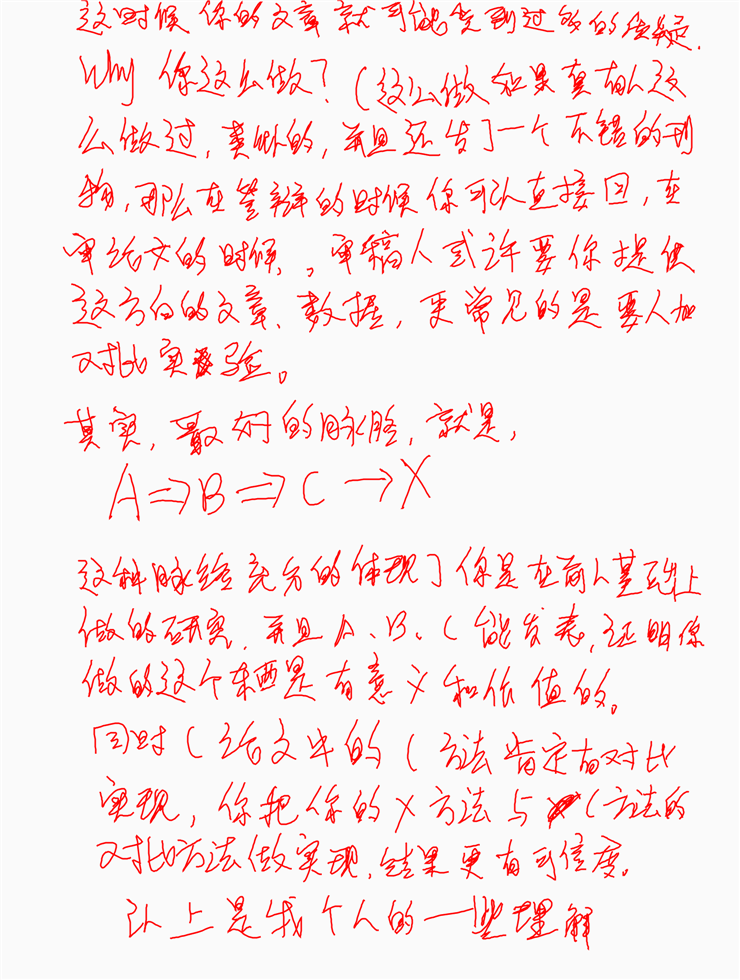 这时候你的文章就可能受到过多的质疑.
Why 你这么做？（这么做如果真有人这
么做过，类似的，并且还发了一个不错的刊
物，那么在答辩的时候你可以直接回，在
审论文的时候，。审稿人或许要你提供
这方向的文章、数据，更常见的是要人加
对比实验。
其实，最好的脉络，就是，
A⇒B⇒C→X
这种脉络充分的体现了你是在前人基础上
做的研究，并且A、B、C能发表，证明你
做的这个东西是有意义和价值的。
同时C论文中的C方法肯定有对比
实现，你把你的X方法与C方法的
对比方法做实现，结果更有可信度。
以上是我个人的一些理解